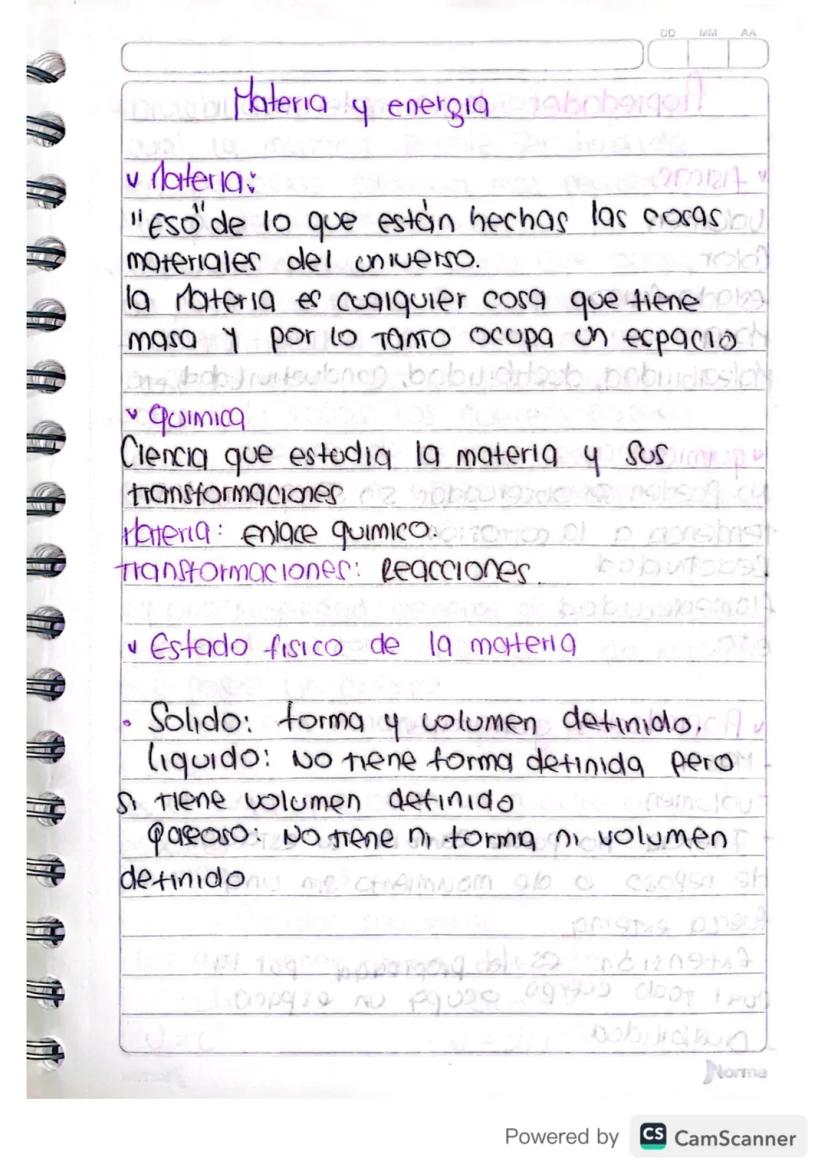 DD MM AA
Materia y energia
v Materia:
"Eso" de lo que están hechas las cosas
materiales del universo.
la Materia es cualquier cosa que tiene
masa y por lo tanto ocupa un espacio
v Quimica
Ciencia que estudia la materia y sus
transformaciones
Materia: enlace quimico.
Transformaciones: Reacciones.
v Estado fisico de la materia
• Solido: forma y volumen definido.
liquido: No tiene forma definida pero
si tiene volumen definido
gaseoso: No tiene ni forma ni volumen
definido
Norma
Powered by CS CamScanner